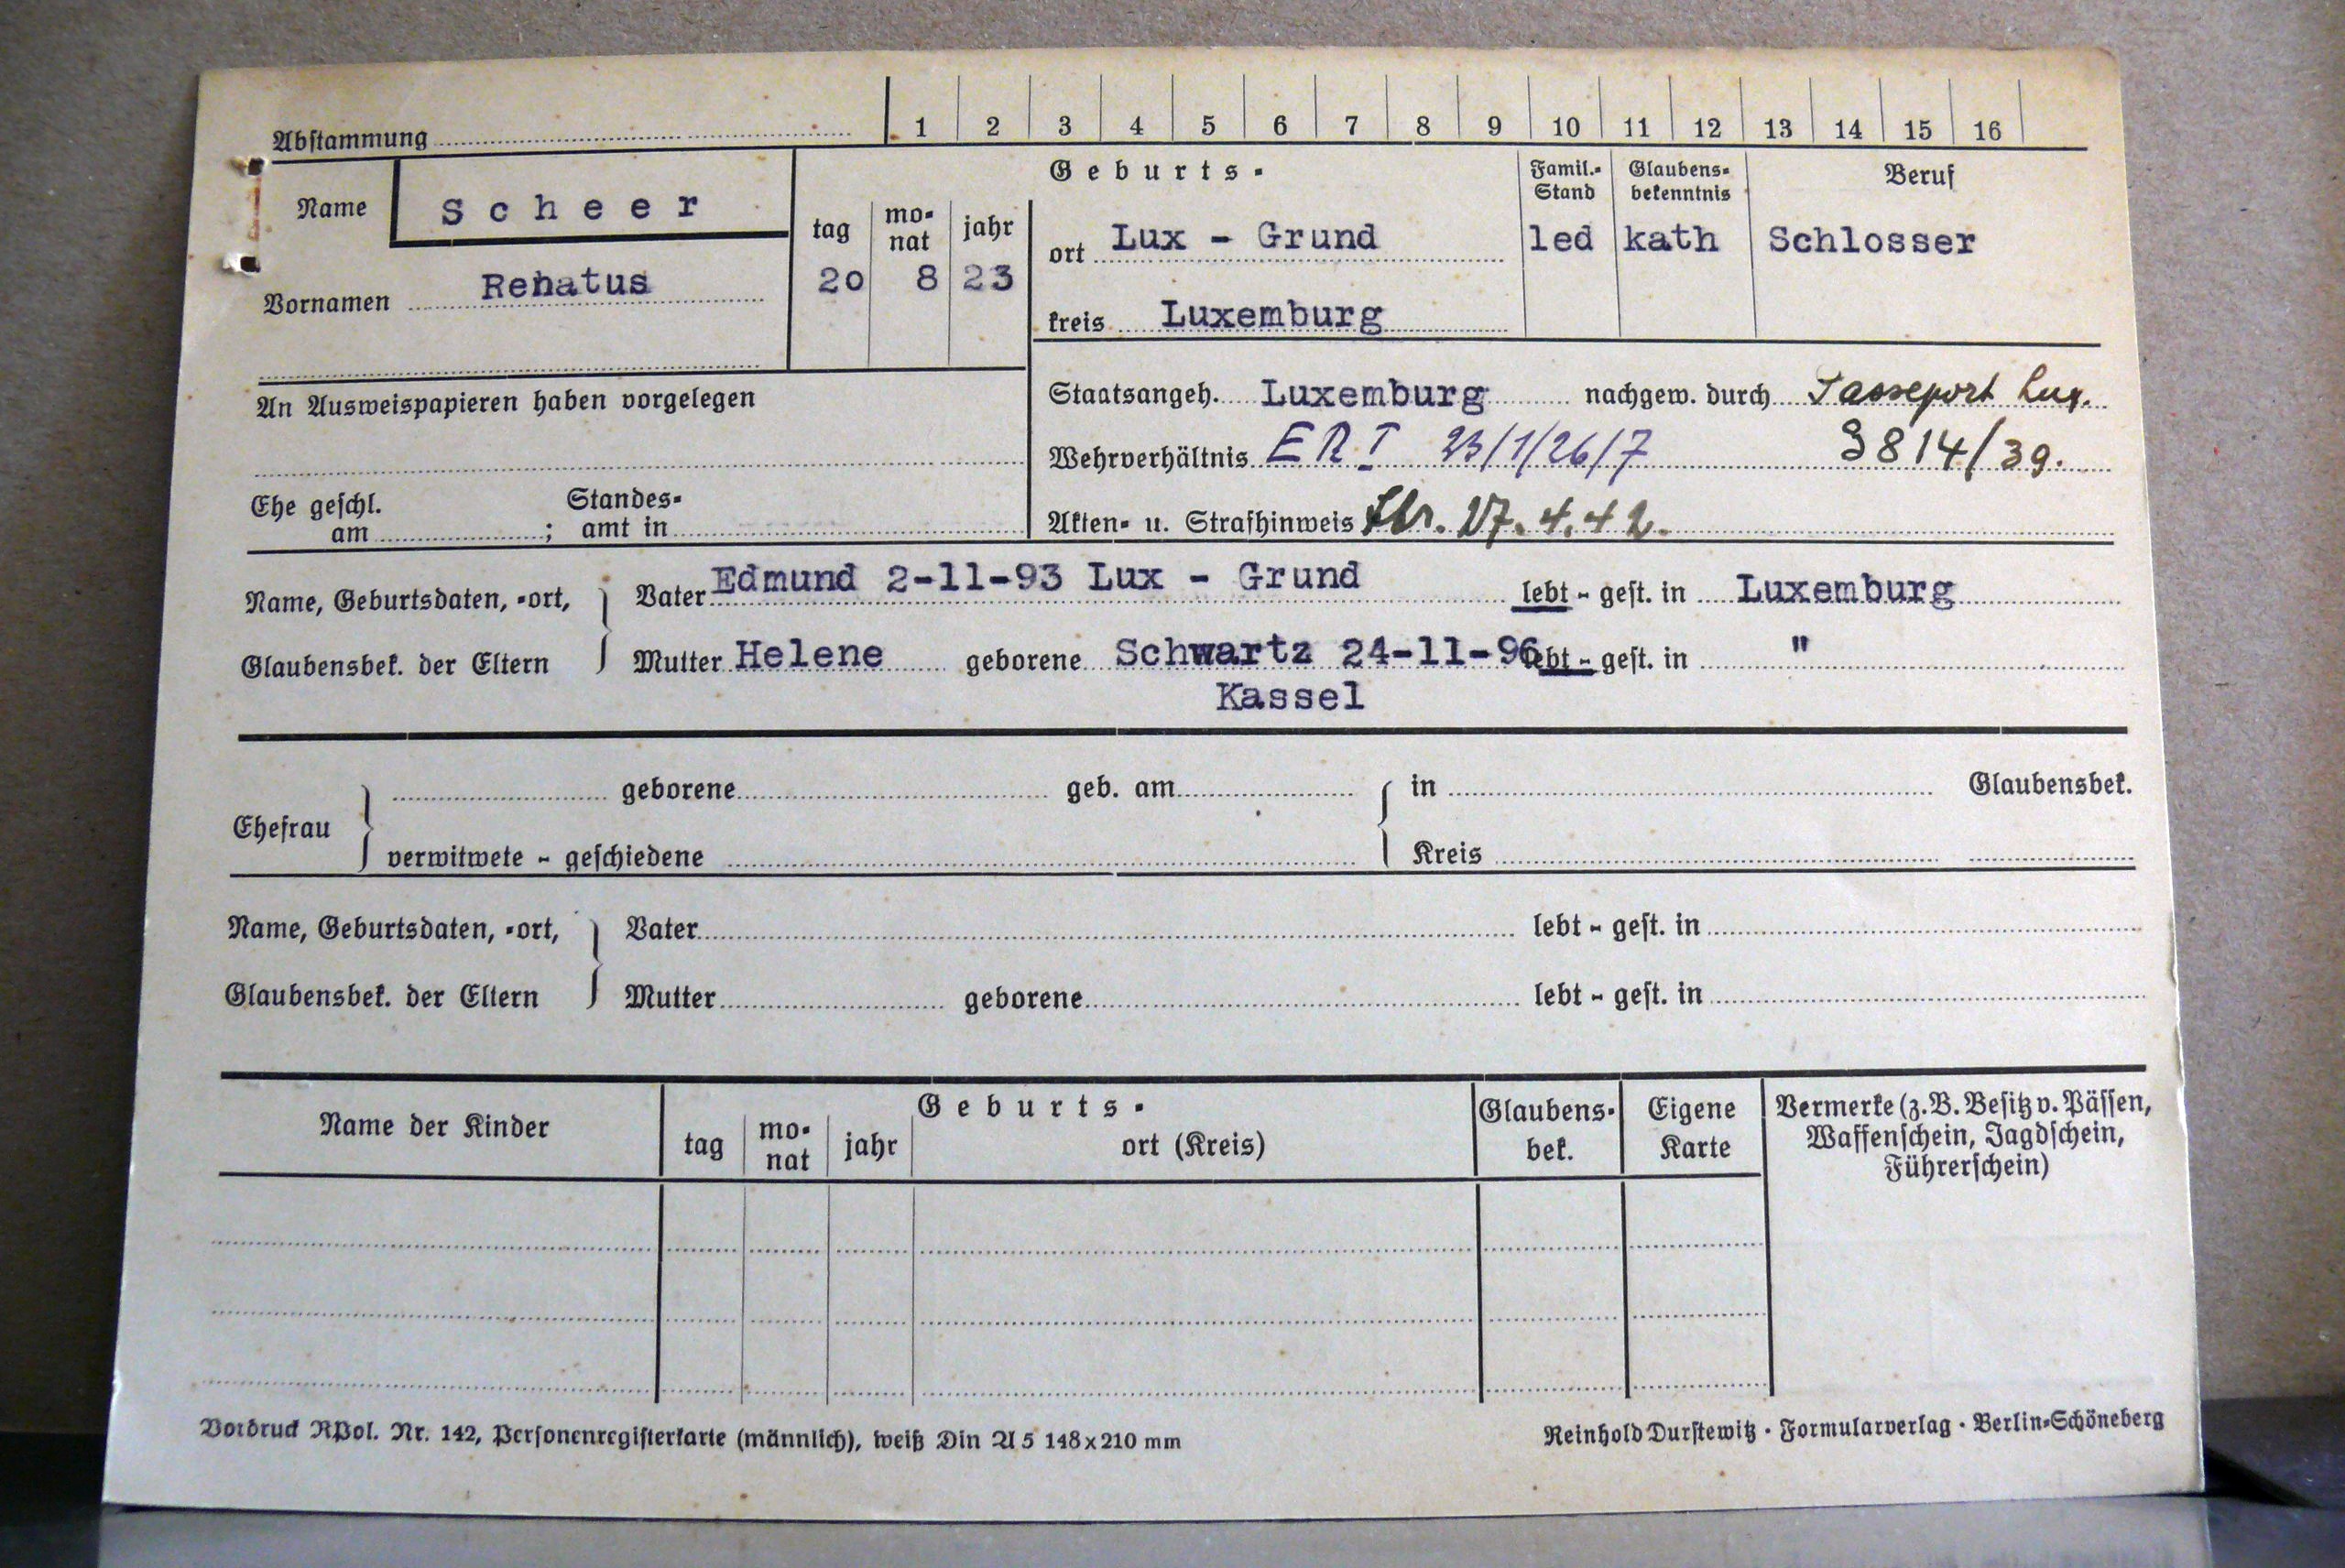 Abstammung 1 2 3 4 5 6 7 8 9 10 11 12 13 14 15 16
Name Scheer
Vornamen Renatus
Geburts-
tag monat jahr
20 8 23
ort Lux - Grund
kreis Luxemburg
Famil.-Stand
led
Glaubens-bekenntnis
kath
Beruf
Schlosser
An Ausweispapieren haben vorgelegen
Staatsangeh. Luxemburg nachgew. durch Passeport Lux.
Wehrverhältnis ER I 23/1/26/7 3814/39.
Ehe geschl. am ; Standes-amt in
Akten- u. Strafhinweis 27.4.42.
Name, Geburtsdaten, -ort,
Glaubensbek. der Eltern
Vater Edmund 2-11-93 Lux - Grund lebt - gest. in Luxemburg
Mutter Helene geborene Schwartz 24-11-96 lebt - gest. in "
Kassel
Ehefrau geborene geb. am in Glaubensbek.
verwitwete - geschiedene Kreis
Name, Geburtsdaten, -ort,
Glaubensbek. der Eltern
Vater lebt - gest. in
Mutter geborene lebt - gest. in
Name der Kinder
Geburts-
tag monat jahr ort (Kreis)
Glaubens-bek.
Eigene Karte
Vermerke (z.B. Besitz v. Pässen,
Waffenschein, Jagdschein,
Führerschein)
Vordruck RPol. Nr. 142, Personenregisterkarte (männlich), weiß Din A5 148x210 mm
Reinhold Durstewitz · Formularverlag · Berlin-Schöneberg